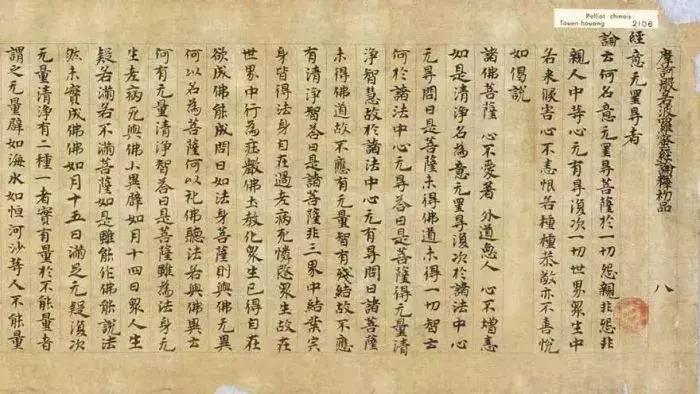 Pelliot chinois
Touen-houang 2106
摩訶般若波羅蜜經論釋初品 八
經 意无罣导者
論 云何名意无罣导菩薩於一切怨親非怨非
親人中等心无有导復次一切世界眾生中
若來侵害心不恚恨若種種恭敬亦不喜悅
如偈說
諸佛菩薩 心不愛著 外道惡人 心不憎恚
如是清淨名為意无罣导復次於諸法中心
无导問曰是菩薩未得佛道未得一切智云
何於諸法中心无导答曰是菩薩得无量清
淨智慧故於諸法中心无有导問曰諸菩薩
未得佛道故不應有无量智有殘結故不應
有清淨智答曰是諸菩薩非三界中結業宍
身皆得法身自在過老病死憐愍眾生故在
世界中行為莊嚴佛土教化眾生已得自在
欲成佛能成問曰如法身菩薩則與佛无異
何以名為菩薩何以礼佛聽法若與佛異云
何有无量清淨智答曰是菩薩雖為法身无
生老病死與佛小異譬如月十四日眾人生
疑若滿若不滿菩薩如是雖能作佛能說法
然未實成佛佛如月十五日滿足无疑復次
无量清淨有二種一者實有量於不能量者
謂之无量譬如海水如恒河沙等人不能量